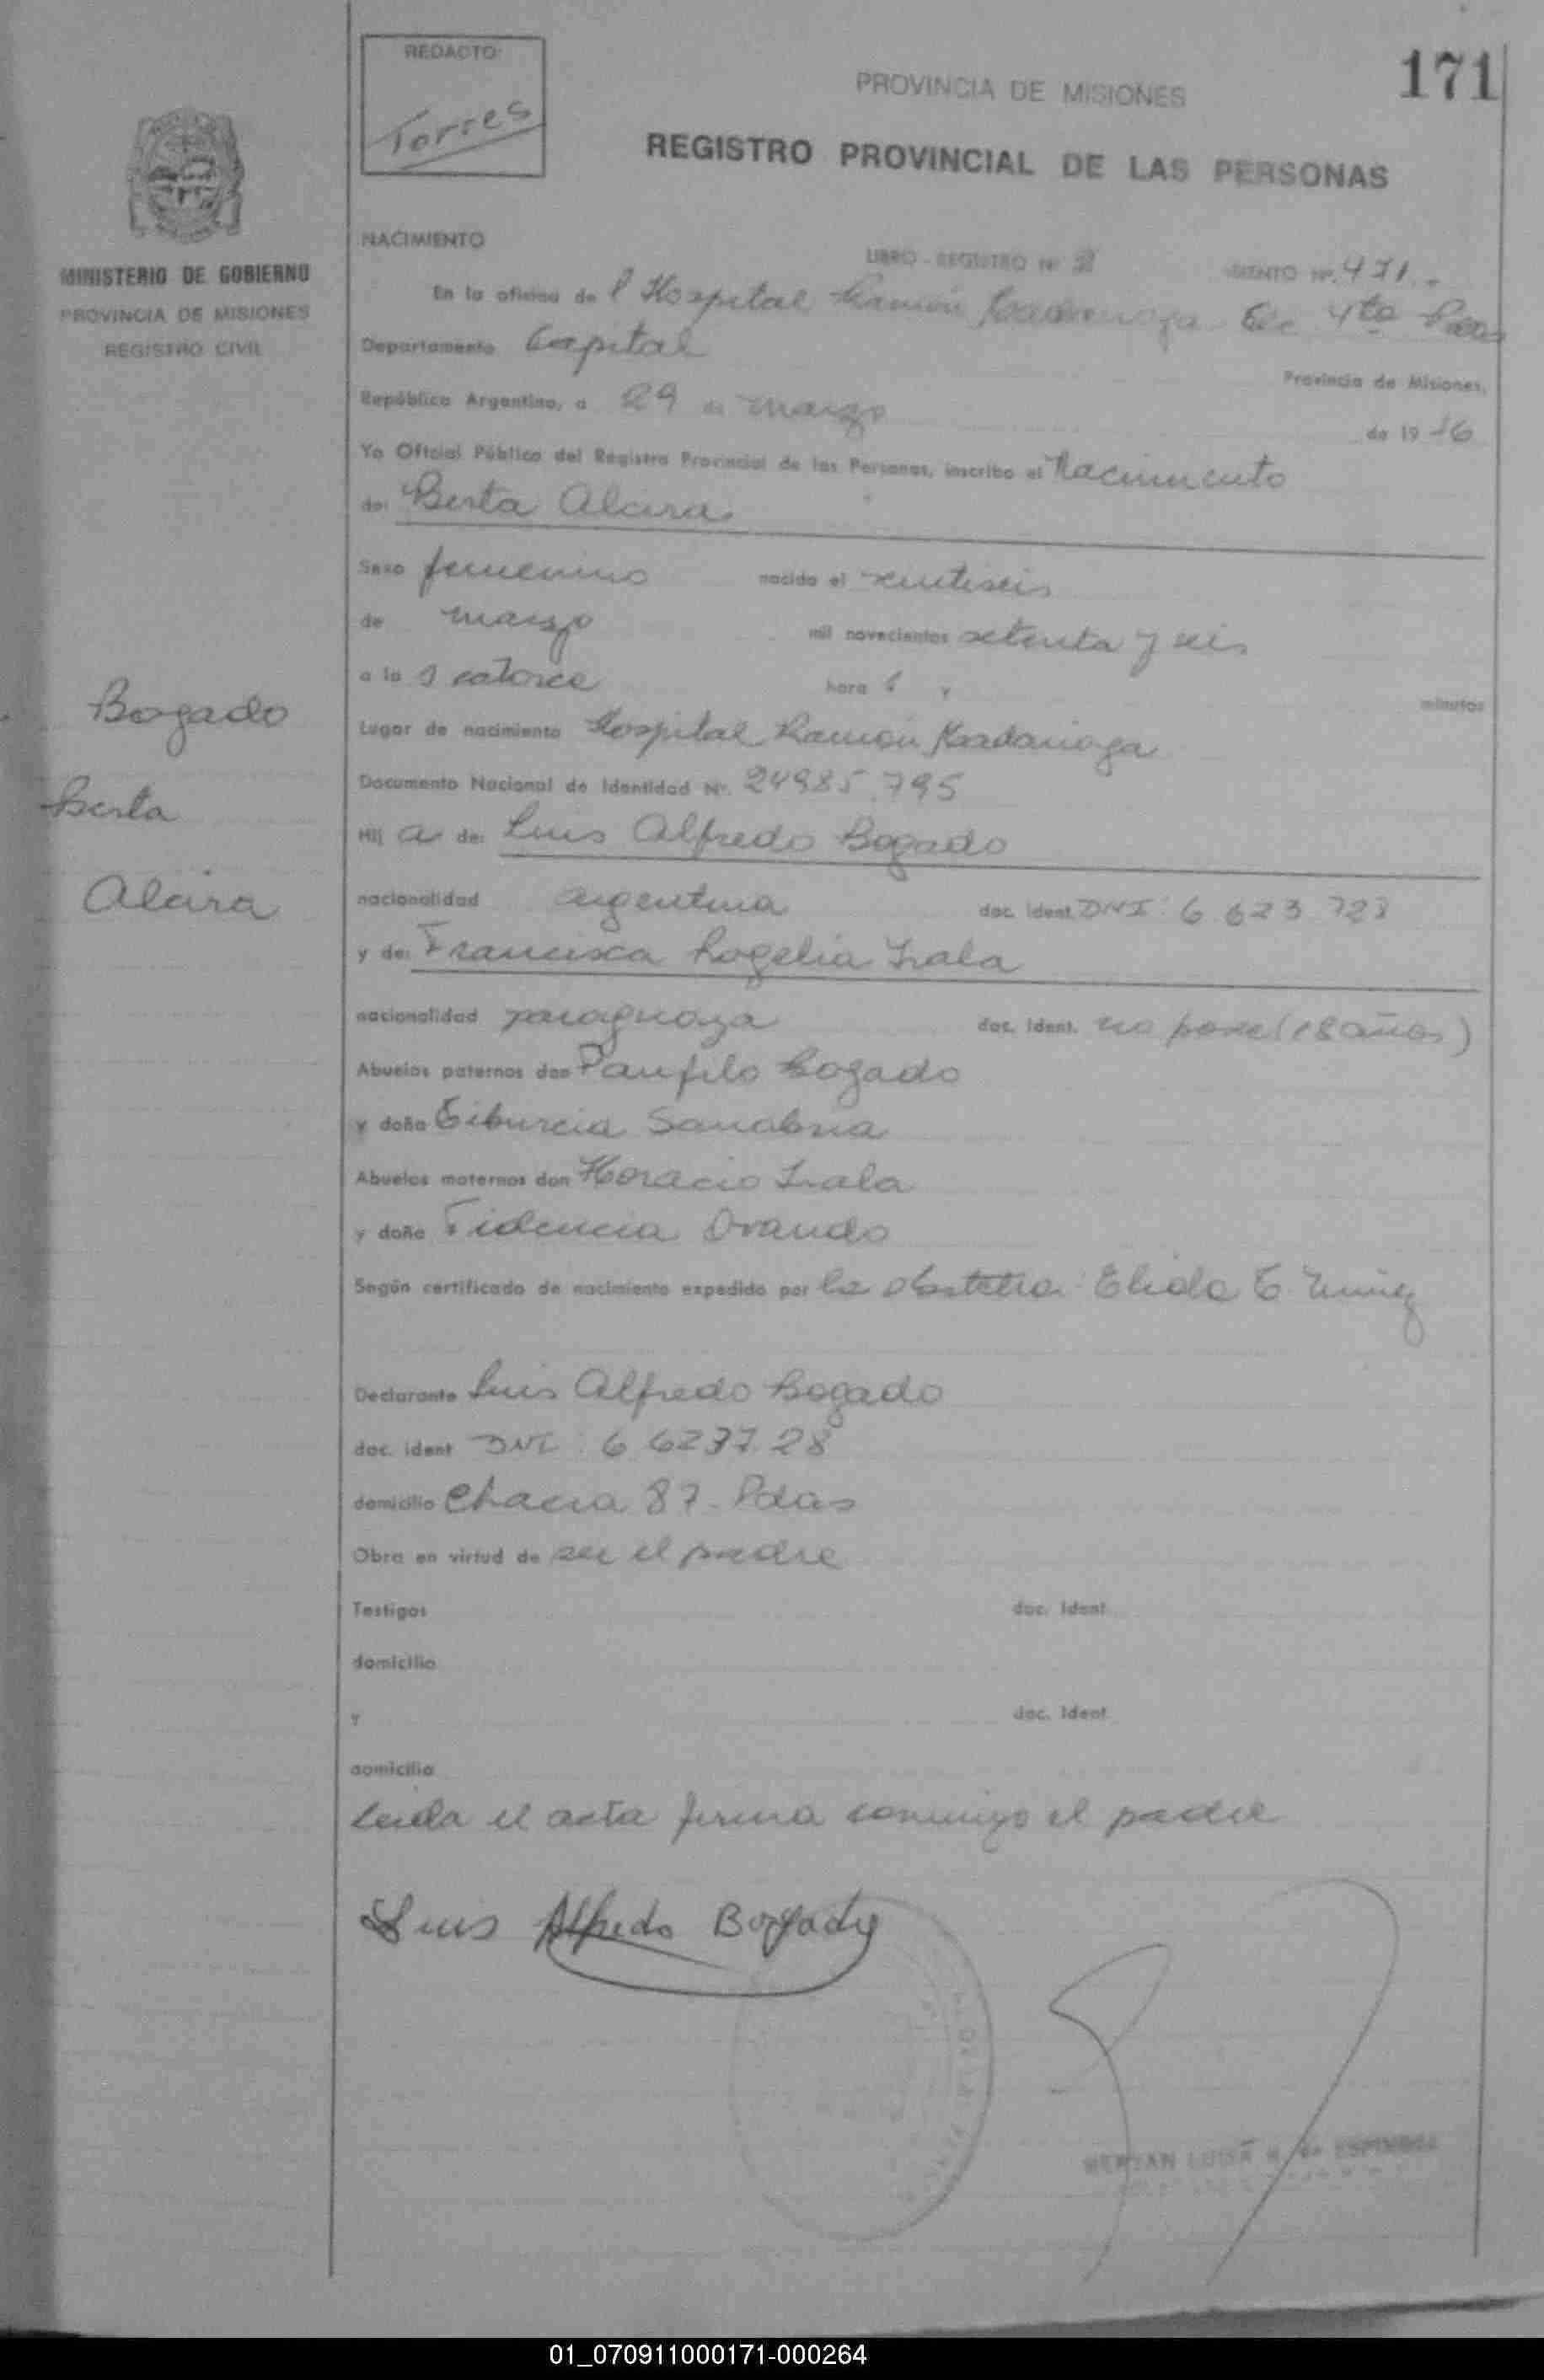 REDACTO:
Torres
171
PROVINCIA DE MISIONES
REGISTRO PROVINCIAL DE LAS PERSONAS
MINISTERIO DE GOBIERNO
PROVINCIA DE MISIONES
REGISTRO CIVIL
NACIMIENTO
LIBRO - REGISTRO Nº 2 ASIENTO Nº. 471.-
En la oficina de l Hospital Ramón Madariaga Sec 4ta Pdas
Departamento Capital Provincia de Misiones,
República Argentina, a 29 de marzo de 19 76
Yo Oficial Público del Registro Provincial de las Personas, inscribo el Nacimiento
de: Berta Alcira
Sexo femenino nacido el veintiseis
de marzo mil novecientos setenta y seis
a la s catorce hora s y minutos
Bogado
Lugar de nacimiento Hospital Ramón Madariaga
Documento Nacional de Identidad Nº. 24985.795
Berta
Hij a de: Luis Alfredo Bogado
Alcira
nacionalidad argentina doc. ident. DNI: 6.623.728
y de: Francisca Rogelia Irala
nacionalidad paraguaya doc. ident. no posee (18 años)
Abuelos paternos don Panfilo Bogado
y doña Tiburcia Sanabria
Abuelos maternos don Horacio Irala
y doña Fidencia Ovando
Según certificado de nacimiento expedido por la obstetra: Elida E.
Declarante Luis Alfredo Bogado
doc. ident DNI: 6.6237.28
domicilio Chacra 87 - Pdas
Obra en virtud de ser el padre
Testigos doc. ident.
domicilio
y doc. ident.
domicilio
Leida el acta firma conmigo el padre
Luis Alfredo Bogado
LUISA ESPINDOLA
01_070911000171-000264